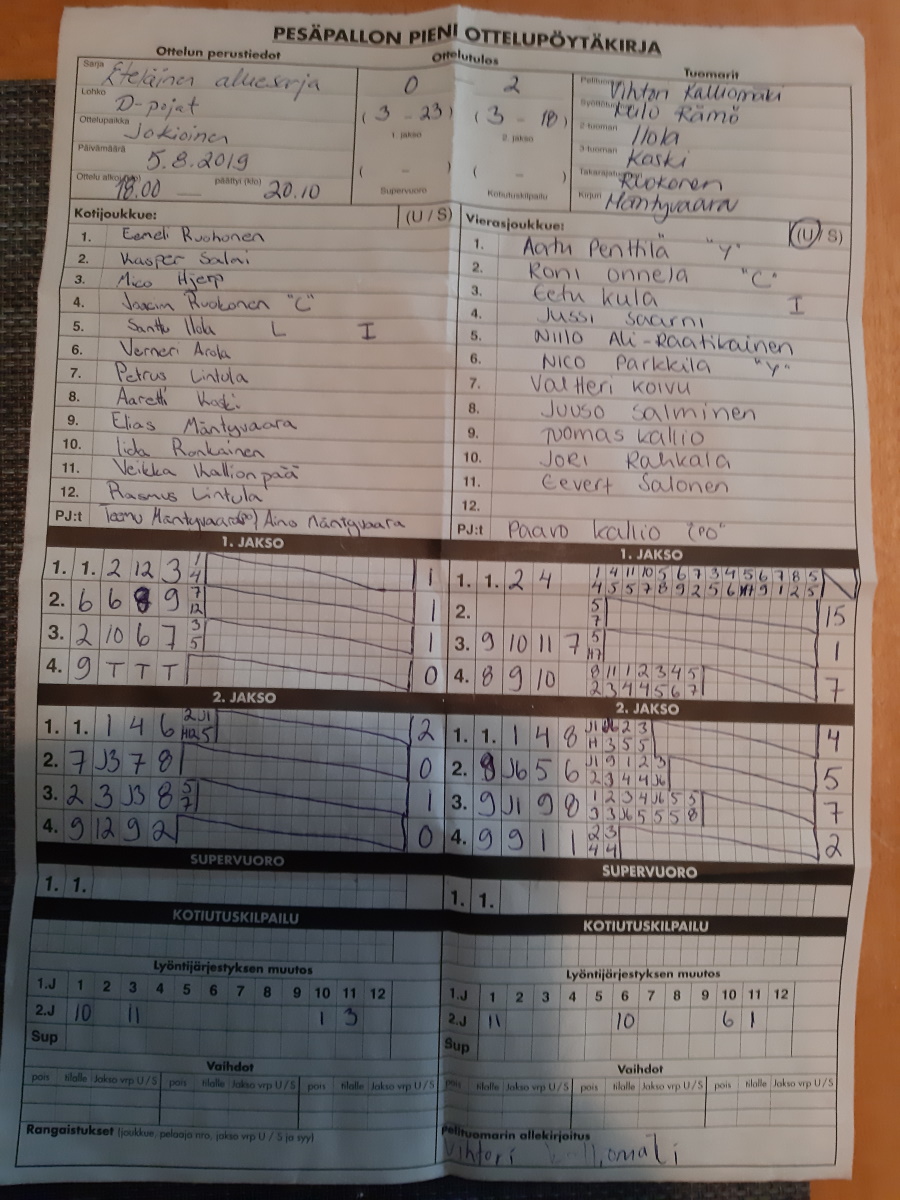 PESÄPALLON PIENI OTTELUPÖYTÄKIRJA
Ottelun perustiedot
Sarja Eteläinen aluesarja
Lohko D-pojat
Ottelupaikka Jokioinen
Päivämäärä 5.8.2019
Ottelu alkoi (klo) 18.00 päättyi (klo) 20.10
Ottelutulos
0 - 2
(3 - 23) (3 - 18)
1. jakso 2. jakso
( - ) ( - )
Supervuoro Kotiutuskilpailu
Tuomarit
Vihtori Kalliomäki
Rämö
2-tuomari Ilola
3-tuomari Koski
Ruokonen
Kirjuri Mäntyvaara
Kotijoukkue: (U / S)
1. Eemeli Ruohonen
2. Kasper Salmi
3. Mico Hjerp
4. Joakim Ruokonen "C"
5. Santtu Ilola L I
6. Verneri Arola
7. Petrus Lintula
8. Aaretti Koski
9. Elias Mäntyvaara
10. Iida Ronkainen
11. Veikka Kallionpää
12. Rasmus Lintula
PJ:t Teemu Mäntyvaara(PO) / Aino Mäntyvaara
Vierasjoukkue: (U / S)
1. Aatu Penttilä "Y"
2. Roni Onnela "C"
3. Eetu Kula I
4. Jussi Saarni
5. Niilo Ali-Raatikainen
6. Nico Parkkila "Y"
7. Valtteri Koivu
8. Juuso Salminen
9. Tuomas Kallio
10. Jori Rahkala
11. Eevert Salonen
12.
PJ:t Paavo Kallio "PO"
1. JAKSO
1. 1. 2 12 3 1 4 1
2. 6 6 8 9 7 12 1
3. 2 10 6 7 3 5 1
4. 9 T T T 0
2. JAKSO
1. 1. 1 4 6 2 J1 H12 5 2
2. 7 J3 7 8 0
3. 2 3 J3 8 5 7 1
4. 9 12 9 2 0
SUPERVUORO
1. 1.
KOTIUTUSKILPAILU
Lyöntijärjestyksen muutos
1.J 1 2 3 4 5 6 7 8 9 10 11 12
2.J 10 11 1 3
Sup
Vaihdot
pois tilalle Jakso vrp U / S pois tilalle Jakso vrp U / S pois tilalle Jakso vrp U / S
Rangaistukset (joukkue, pelaaja nro, jakso vrp U / S ja syy)
1. JAKSO
1. 1. 2 4 1 4 11 10 5 6 7 3 4 5 6 7 8 5
4 5 5 7 8 9 2 5 6 H7 9 1 2 5
2. 5 7 15
3. 9 10 11 7 5 H7 1
4. 8 9 10 8 11 1 2 3 4 5 7
2 3 4 4 5 6 7
2. JAKSO
1. 1. 1 4 8 J1 J6 2 3 4
H 3 5 5
2. 8 J6 5 6 J1 9 1 2 3 5
2 3 4 4 J6
3. 9 J1 9 8 1 2 3 4 J6 5 5 7
3 3 J6 5 5 5 8
4. 9 9 1 1 2 3 2
4 4
SUPERVUORO
1. 1.
KOTIUTUSKILPAILU
Lyöntijärjestyksen muutos
1.J 1 2 3 4 5 6 7 8 9 10 11 12
2.J 11 10 6 1
Sup
Vaihdot
pois tilalle Jakso vrp U / S pois tilalle Jakso vrp U / S pois tilalle Jakso vrp U / S
Pelituomarin allekirjoitus
Vihtori